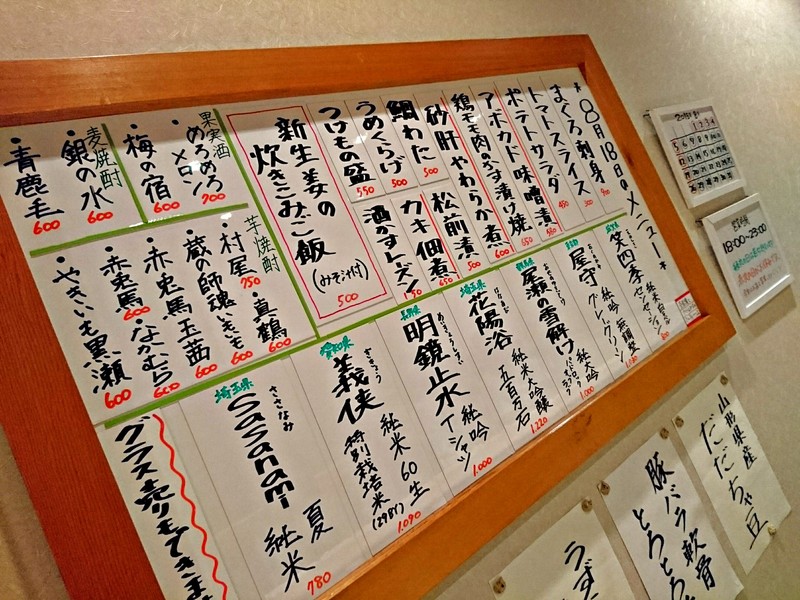 *8月18日のメニュー*
まぐろ刺身
900
トマトスライス
300
ポテトサラダ
450
アボカド味噌漬
550
鶏モモ肉のみそ漬け焼
650
砂肝やわらか煮
600
松前漬
500
鯛わた
500
カキ佃煮
650
うめくらげ
500
酒かすレーズン
つけもの盆
550
新生姜の
炊きこみご飯
(みそ汁付)
500
果実酒
・めろめろ
メロン
700
・梅の宿
600
麦焼酎
・銀の水
600
・青鹿毛
600
芋焼酎
・真鶴
600
・村尾
750
・蔵の師魂いもいも
600
・赤兎馬玉茜
600
・なかむら
600
・赤兎馬
600
・やきいも黒瀬
600
笑四季
センセーション
屋守
純吟 無調整
グレーグリーン
尾瀬の雪解け
純米大吟醸
1.220
埼玉県
花陽浴
純米大吟
五百万石
明鏡止水
純吟
Tシャツ
1.000
愛知県
義侠
純米60生
特別栽培米
1.090
埼玉県
ささなみ
Sasanami
夏
純米
780
グラス売りもできま
営業時間
18:00~23:00
山形県産
だだちゃ豆
豚バラ軟骨
とろとろ
うず